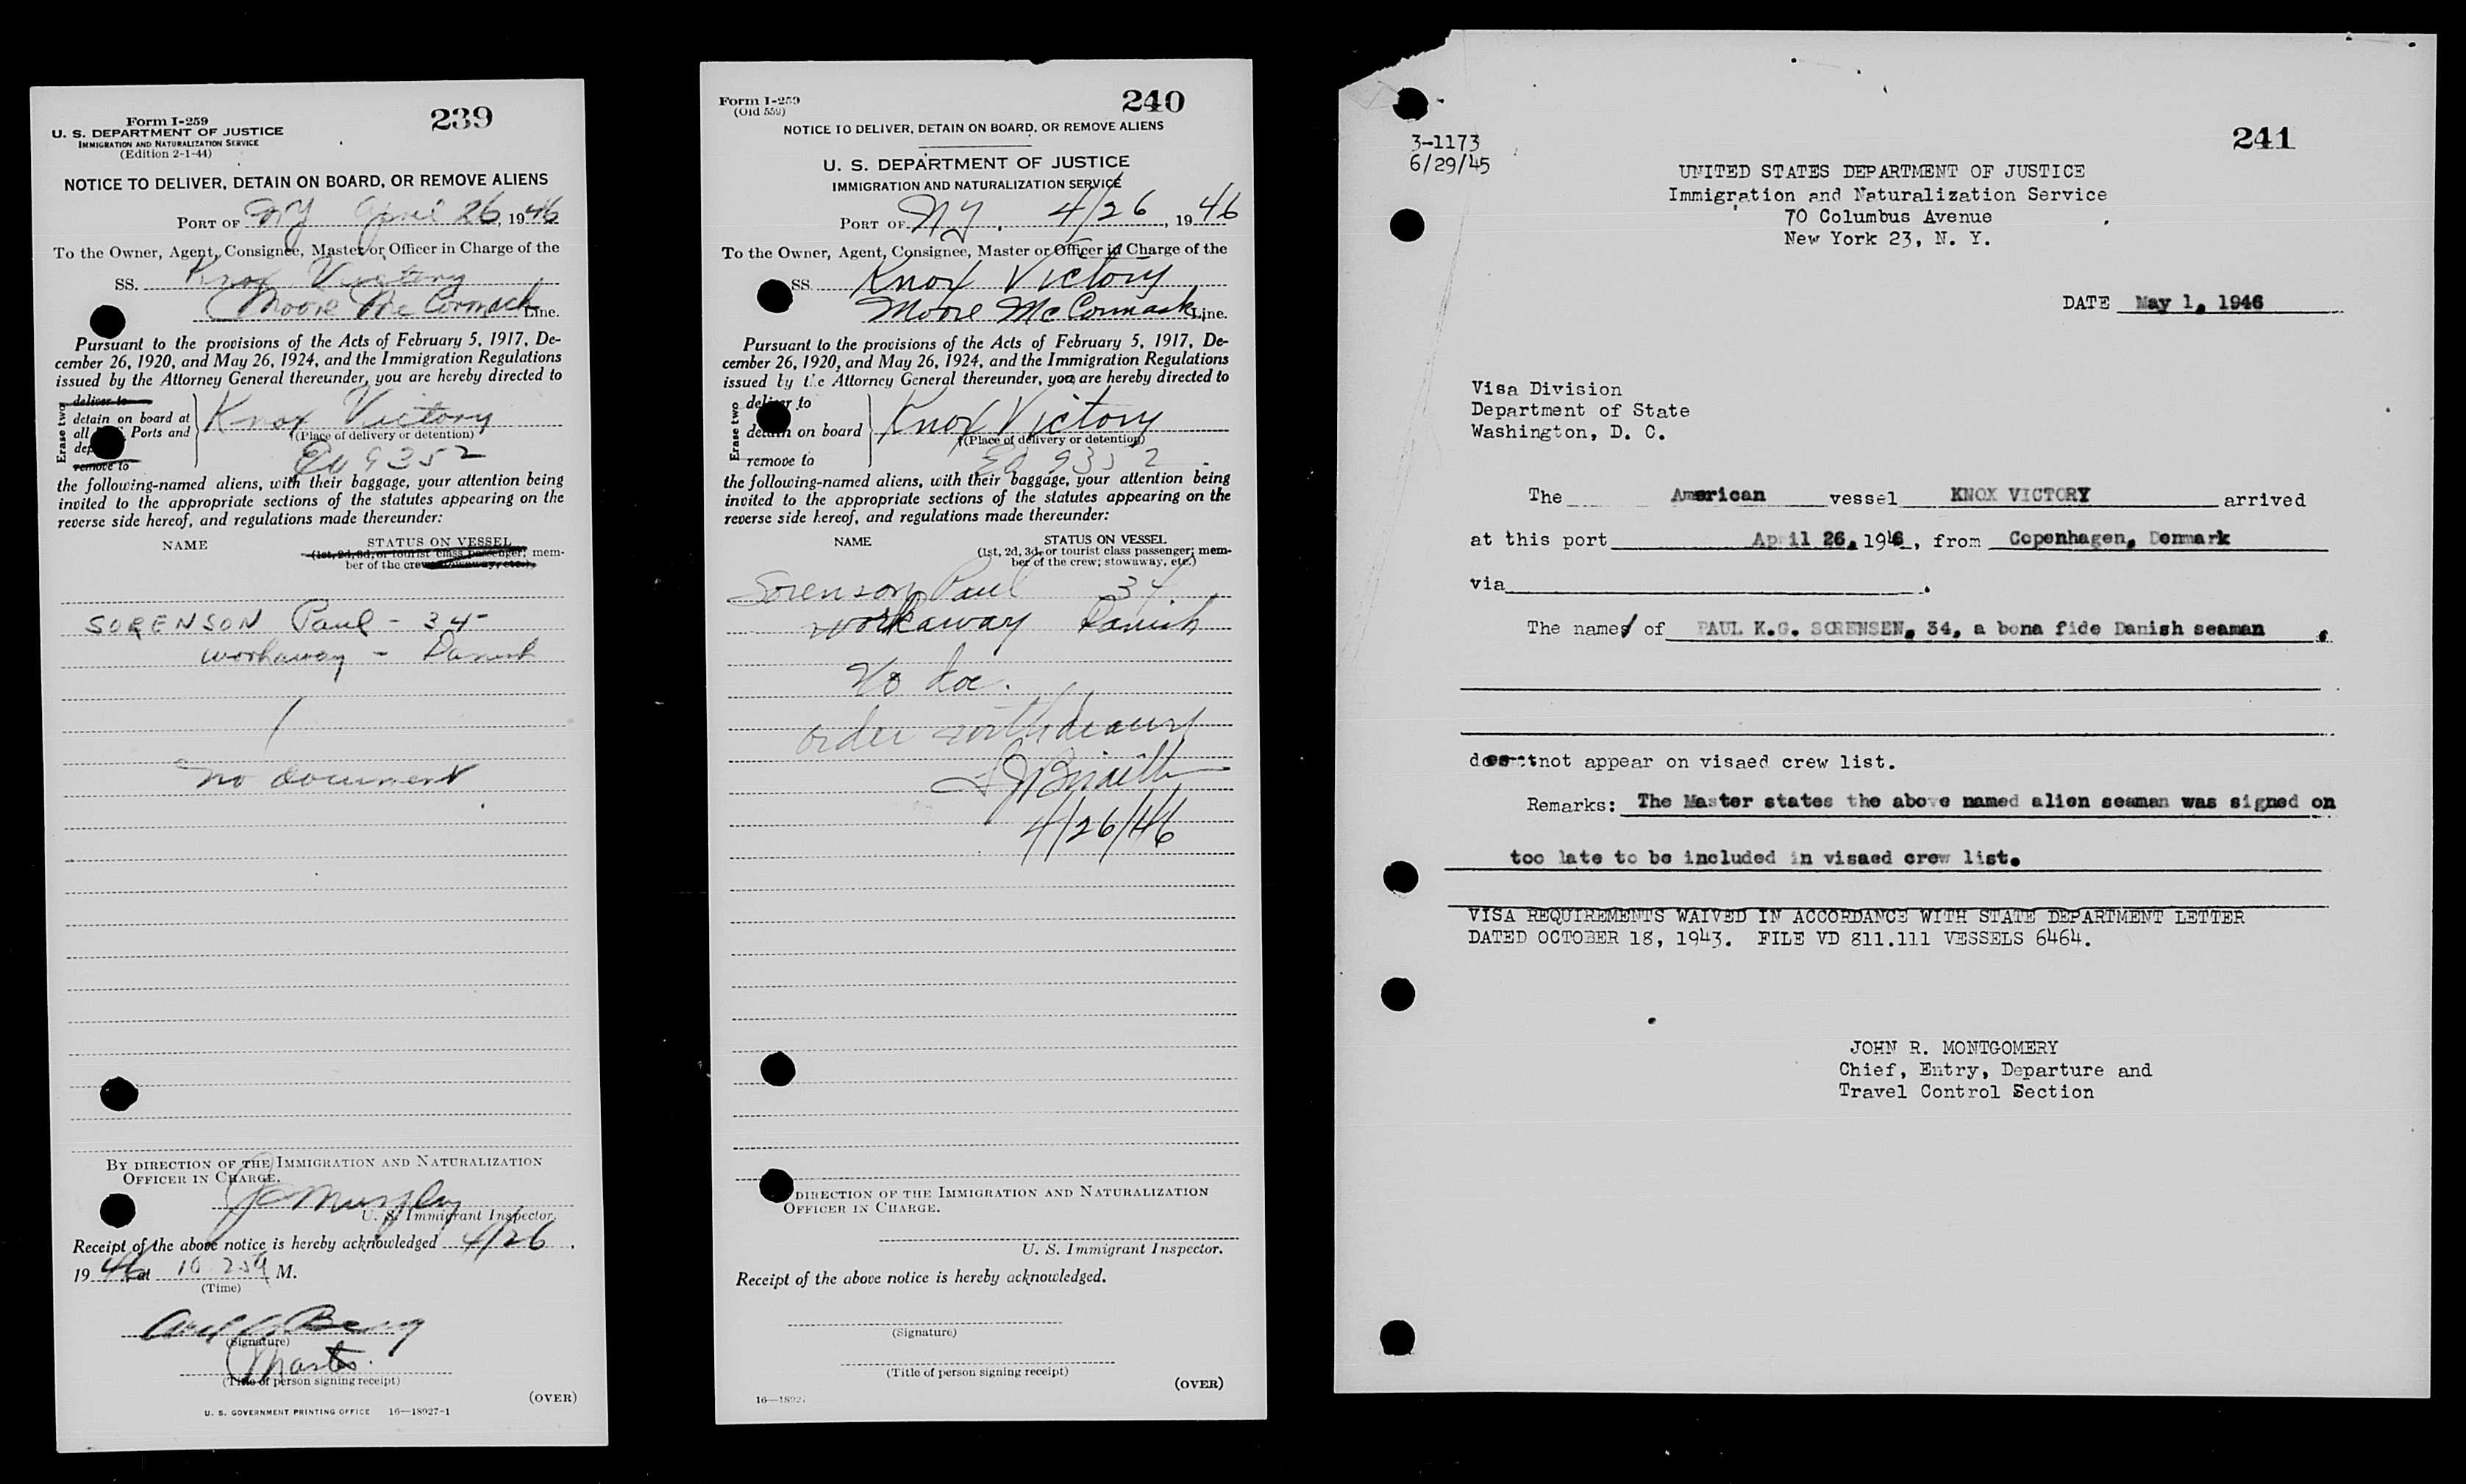 239
Form I-259
U. S. DEPARTMENT OF JUSTICE
IMMIGRATION AND NATURALIZATION SERVICE
(Edition 2-1-44)
NOTICE TO DELIVER, DETAIN ON BOARD, OR REMOVE ALIENS
PORT OF NY April 26, 1946
To the Owner, Agent, Consignee, Master or Officer in Charge of the
SS. Knox Victory
Moore McCormack Line.
Pursuant to the provisions of the Acts of February 5, 1917, De-
cember 26, 1920, and May 26, 1924, and the Immigration Regulations
issued by the Attorney General thereunder, you are hereby directed to
Erase two
deliver to
detain on board at
all Ports and
remove to
Knox Victory
(Place of delivery or detention)
9352
the following-named aliens, with their baggage, your attention being
invited to the appropriate sections of the statutes appearing on the
reverse side hereof, and regulations made thereunder:
NAME STATUS ON VESSEL
(1st, 2d, 3d, or tourist class passenger; mem-
ber of the crew; stowaway, etc.)
SORENSON Paul - 34 -
workaway - Danish
no document
BY DIRECTION OF THE IMMIGRATION AND NATURALIZATION
OFFICER IN CHARGE.
Murphy
U. S. Immigrant Inspector.
Receipt of the above notice is hereby acknowledged 4/26.
1946 at 10 M.
(Time)
Berg
(Signature)
Master.
(Title of person signing receipt)
(OVER)
U. S. GOVERNMENT PRINTING OFFICE 16—18927-1
Form I-259
(Old 559)
240
NOTICE TO DELIVER, DETAIN ON BOARD, OR REMOVE ALIENS
U. S. DEPARTMENT OF JUSTICE
IMMIGRATION AND NATURALIZATION SERVICE
PORT OF NY. 4/26, 1946
To the Owner, Agent, Consignee, Master or Officer in Charge of the
SS Knox Victory
Moore McCormack Line.
Pursuant to the provisions of the Acts of February 5, 1917, De-
cember 26, 1920, and May 26, 1924, and the Immigration Regulations
issued by the Attorney General thereunder, you are hereby directed to
Erase two
deliver to
detain on board
remove to
Knox Victory
(Place of delivery or detention)
9352
the following-named aliens, with their baggage, your attention being
invited to the appropriate sections of the statutes appearing on the
reverse side hereof, and regulations made thereunder:
NAME STATUS ON VESSEL
(1st, 2d, 3d, or tourist class passenger; mem-
ber of the crew; stowaway, etc.)
Sorenson Paul 34
workaway Danish
No doc.
order withdrawn
4/26/46
DIRECTION OF THE IMMIGRATION AND NATURALIZATION
OFFICER IN CHARGE.
U. S. Immigrant Inspector.
Receipt of the above notice is hereby acknowledged.
(Signature)
(Title of person signing receipt)
(OVER)
16—18927
241
3-1173
6/29/45
UNITED STATES DEPARTMENT OF JUSTICE
Immigration and Naturalization Service
70 Columbus Avenue
New York 23, N. Y.
DATE May 1, 1946
Visa Division
Department of State
Washington, D. C.
The American vessel KNOX VICTORY arrived
at this port April 26, 1946, from Copenhagen, Denmark
via .
The names of PAUL K.G. SORENSEN, 34, a bona fide Danish seaman,
does not appear on visaed crew list.
Remarks: The Master states the above named alien seaman was signed on
too late to be included in visaed crew list.
VISA REQUIREMENTS WAIVED IN ACCORDANCE WITH STATE DEPARTMENT LETTER
DATED OCTOBER 18, 1943. FILE VD 811.111 VESSELS 6464.
JOHN R. MONTGOMERY
Chief, Entry, Departure and
Travel Control Section